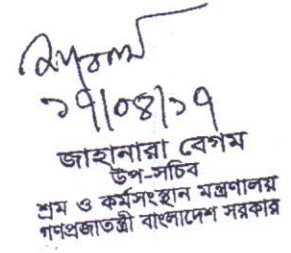 ১৭/০৪/১৭
জাহানারা বেগম
উপ-সচিব
শ্রম ও কর্মসংস্থান মন্ত্রণালয়
গণপ্রজাতন্ত্রী বাংলাদেশ সরকার